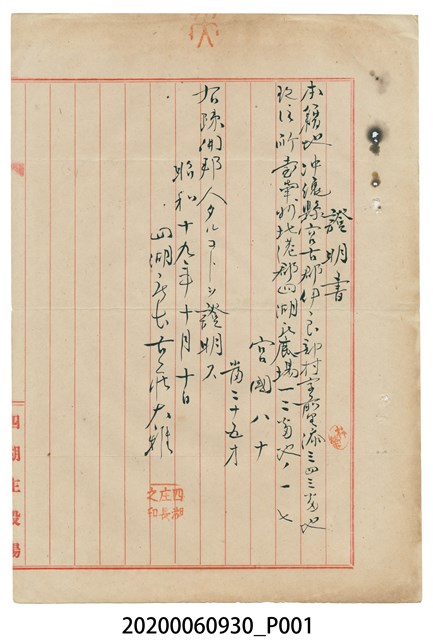 證明書
本籍地 沖繩縣宮古郡伊良部村字前里添三四三番地
現住所 臺南州北港郡四湖庄鹿場一二番地ノ一七
宮國八十
當二十五才
右疎開邦人タルコトヲ證明ス
昭和十九年十月十日
四湖庄長
四湖庄長之印
四湖庄役場
20200060930_P001